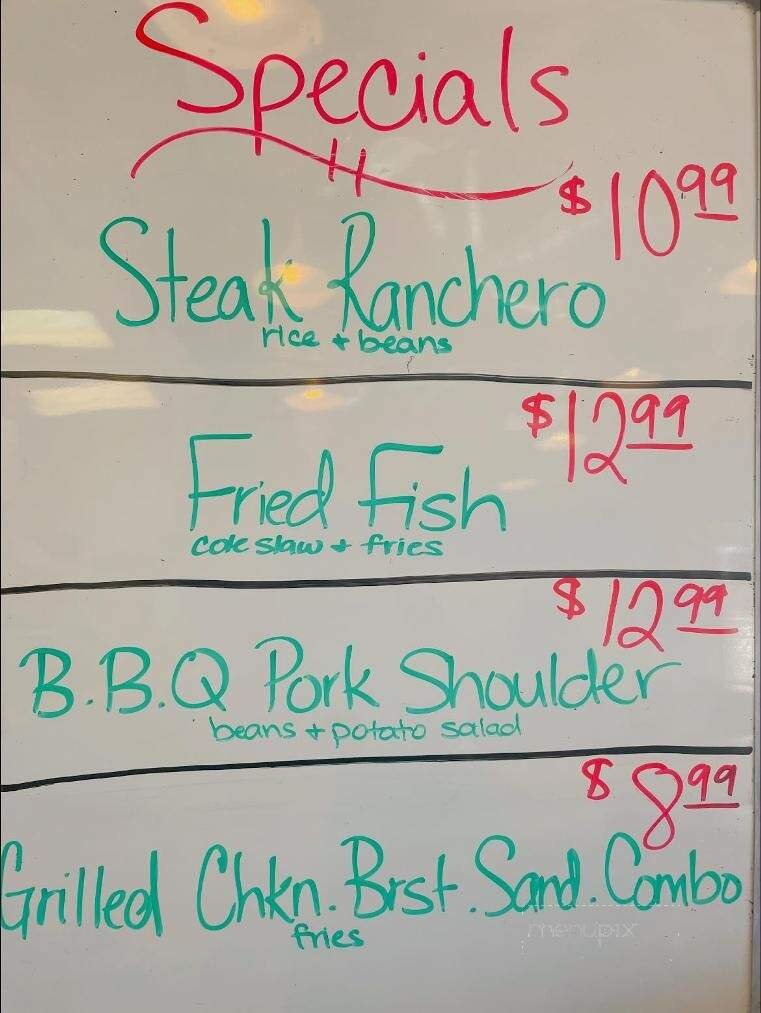 Specials
$10.99
Steak Ranchero
rice + beans
$12.99
Fried Fish
cole slaw + fries
$12.99
B.B.Q Pork Shoulder
beans + potato salad
$8.99
Grilled Chkn. Brst. Sand. Combo
fries
menupix